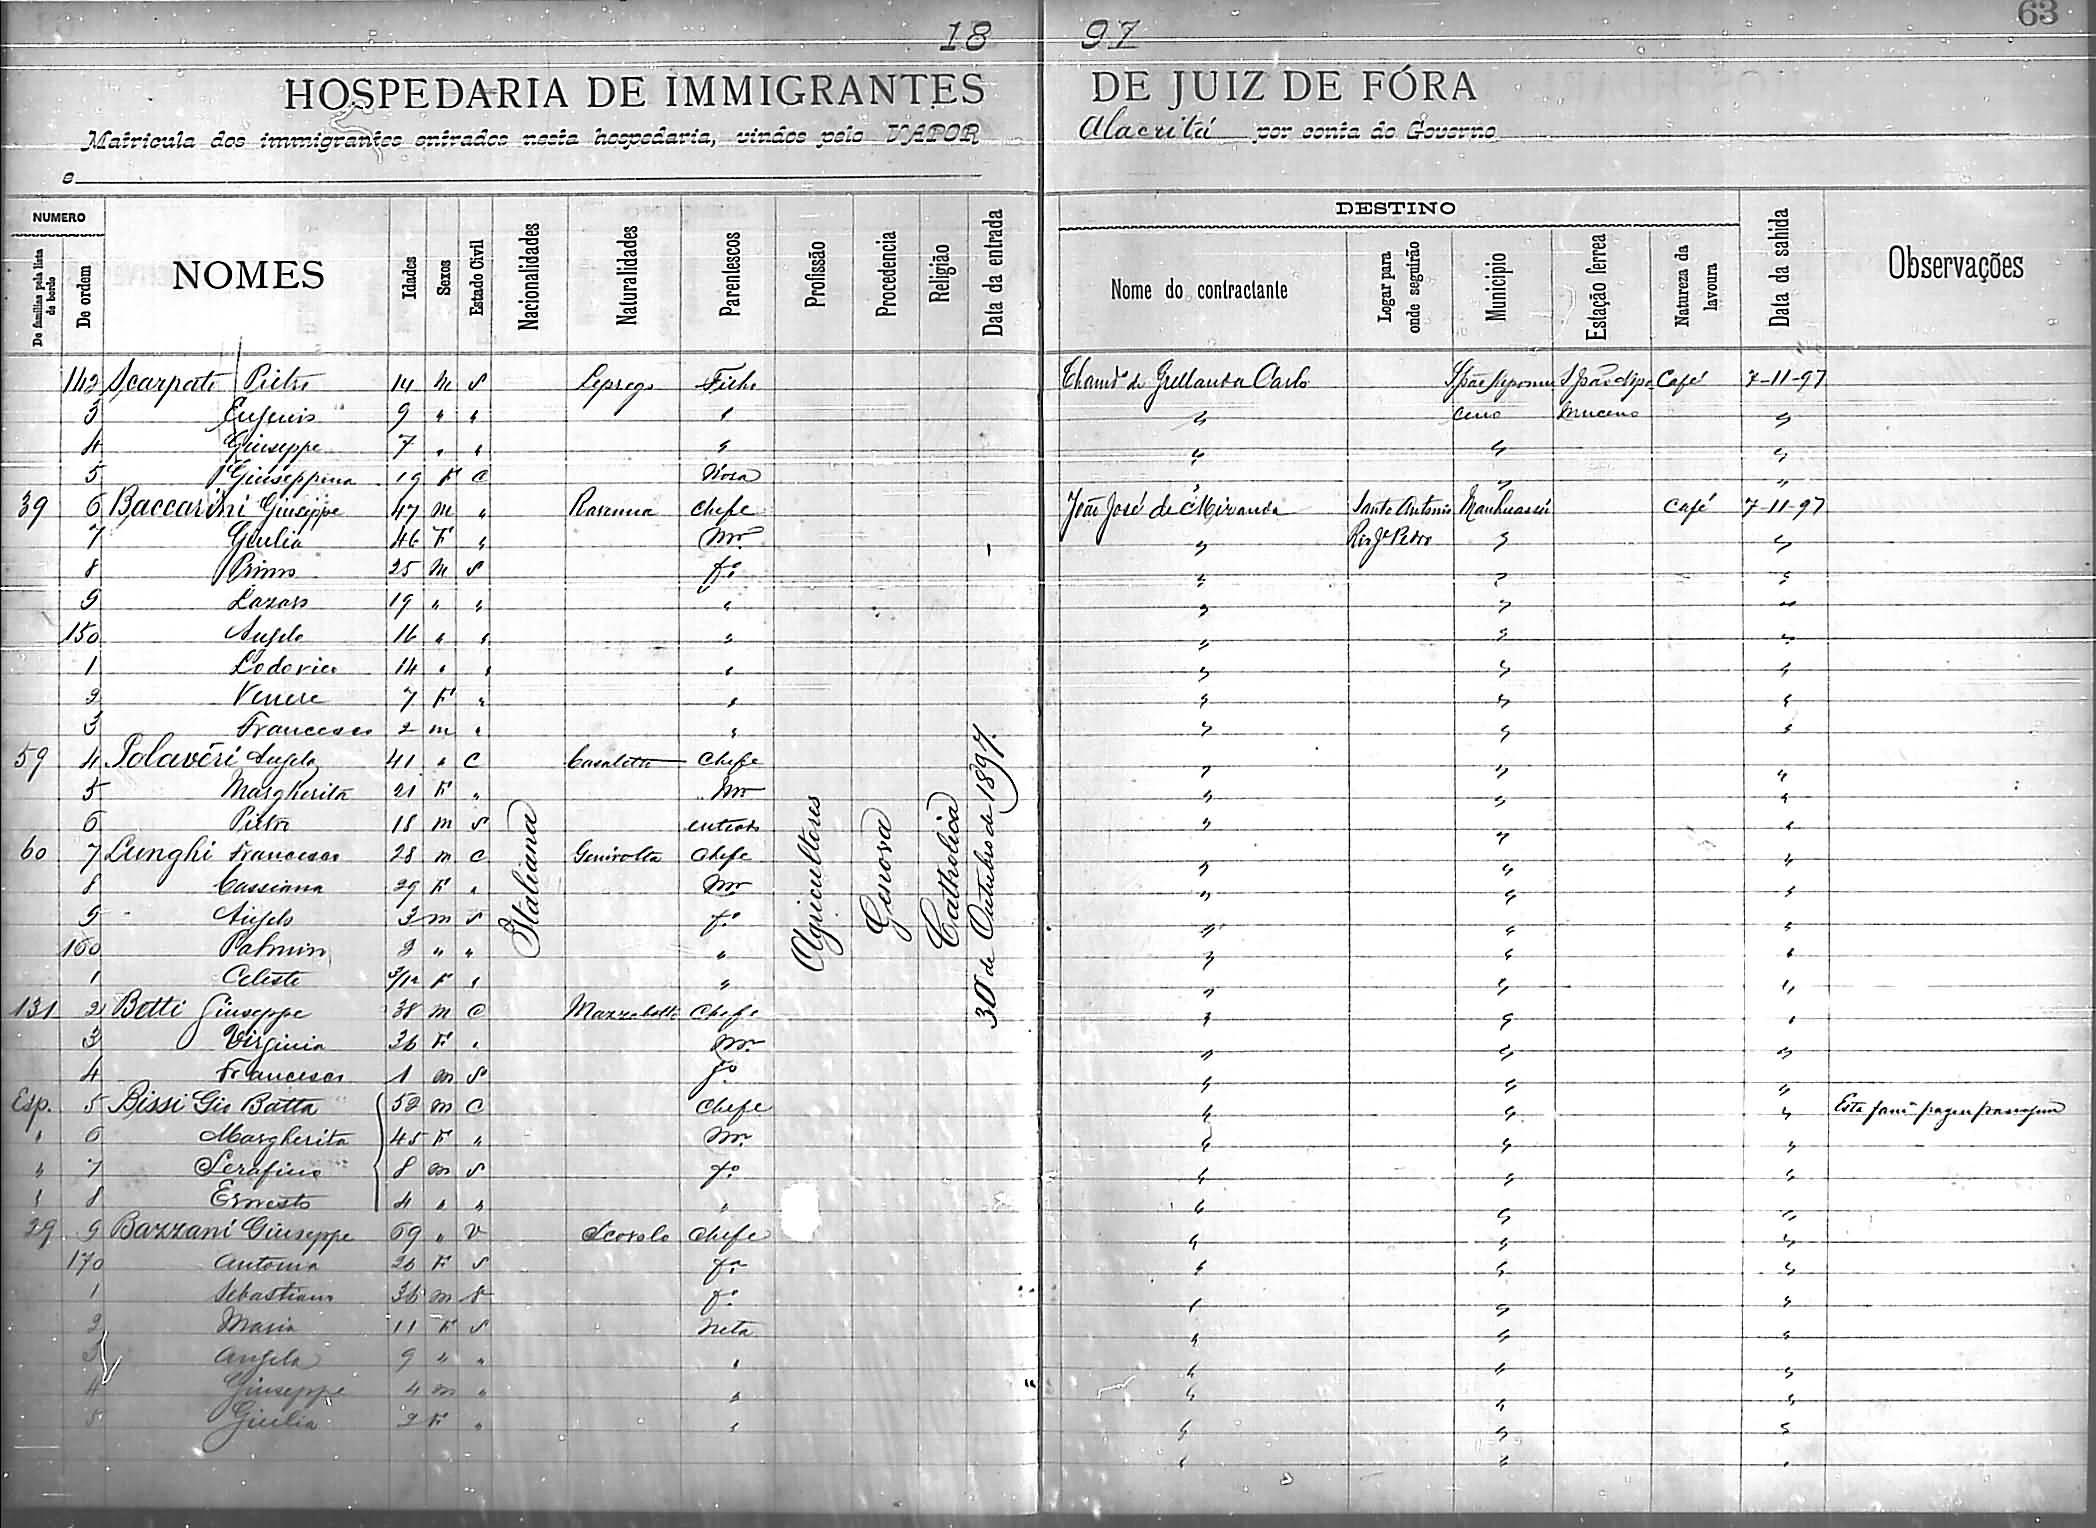 63
18 97
HOSPEDARIA DE IMMIGRANTES DE JUIZ DE FÓRA
Matricula dos immigrantes entrados nesta hospedaria, vindos pelo VAPOR Alacritá por conta do Governo
e
NUMERO
De familias pela lista de bordo
De ordem
NOMES
Idades
Sexos
Estado Civil
Nacionalidades
Naturalidades
Parentescos
Profissão
Procedencia
Religião
Data da entrada
DESTINO
Nome do contractante
Logar para onde seguirão
Municipio
Estação ferrea
Natureza da lavoura
Data da sahida
Observações
142 Scarpati Pietro 14 m S Filho Carlo Café 7-11-97
3 Eugenio 9 " " " " "
4 Giuseppe 7 " " " " " "
5 Giuseppina 19 F C Nora " " "
39 6 Baccarini Giuseppe 47 m " Ravenna Chefe João José de Miranda Santo Antonio Manhuassú Café 7-11-97
7 Giulia 46 F " mr. " Rio Je Pedro " "
8 Primo 25 m S fo " " "
9 Lazaro 19 " " " " " "
150 Angelo 16 " " " " " "
1 Lodovico 14 " " " " " "
2 Venere 7 F " " " " "
3 Francesco 2 m " " " " "
59 4 Polavéri Angelo 41 " C Chefe " " "
5 Margherita 21 F " mr " " "
6 Pietro 18 m S " " "
60 7 Lunghi Francesco 28 m C Genivolta Chefe " " "
8 Cassiana 29 F " mr " " "
9 Angelo 3 m S fo " " "
160 Palmiro 2 " " " " " "
1 Celeste 3/12 F " " " " "
131 2 Betti Giuseppe 38 m C Chefe " " "
3 Virginia 36 F " mr " " "
4 Francesco 1 m S fo " " "
Esp. 5 Bissi Gio Batta 52 m C Chefe " " " Esta
" 6 Margherita 45 F " mr. " " "
" 7 Serafino 8 m S fo " " "
" 8 Ernesto 4 " " " " " "
29 9 Bazzani Giuseppe 69 " V Scovolo Chefe " " "
170 Antonia 26 F S fa " " "
1 Sebastiano 36 m fo " " "
2 Maria 11 F S Neta " " "
3 Angela 9 " " " " " "
4 Giuseppe 4 m " " " " "
5 Giulia 2 F " " " " "
" " "
Italiana
Agricultores
Genova
Catholica
30 de Outubro de 1897.